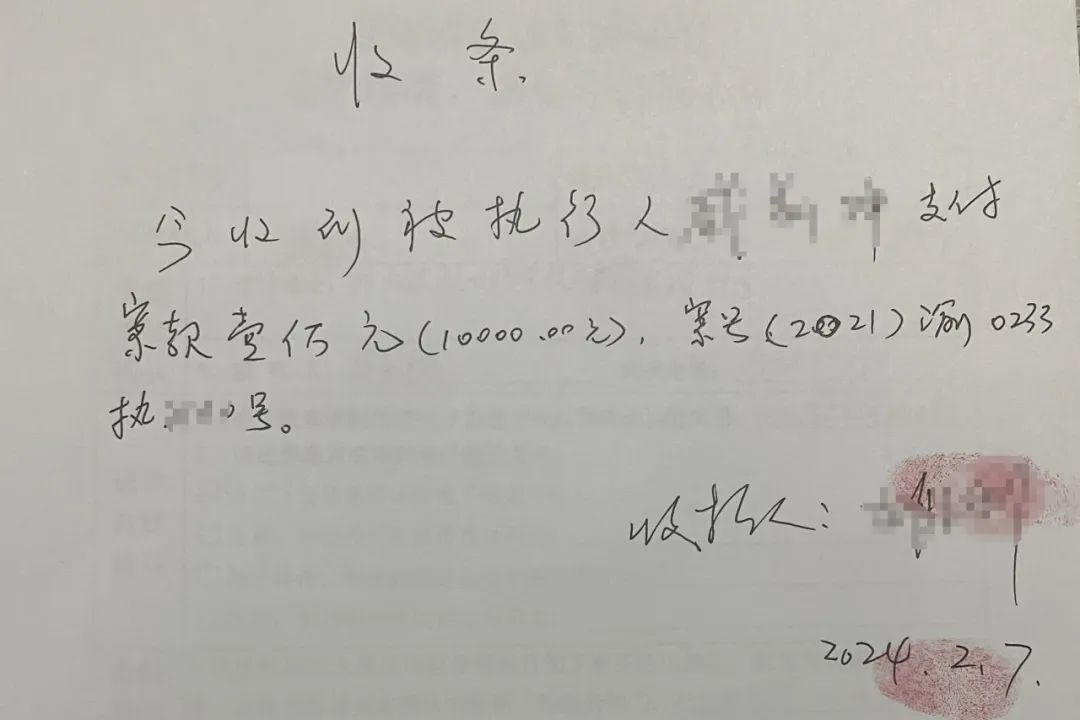 收条
今收到被执行人 支付
案款壹佰元(10000.00元),案号(2021)渝0233
执 号。
收款人:
2024.2.7.